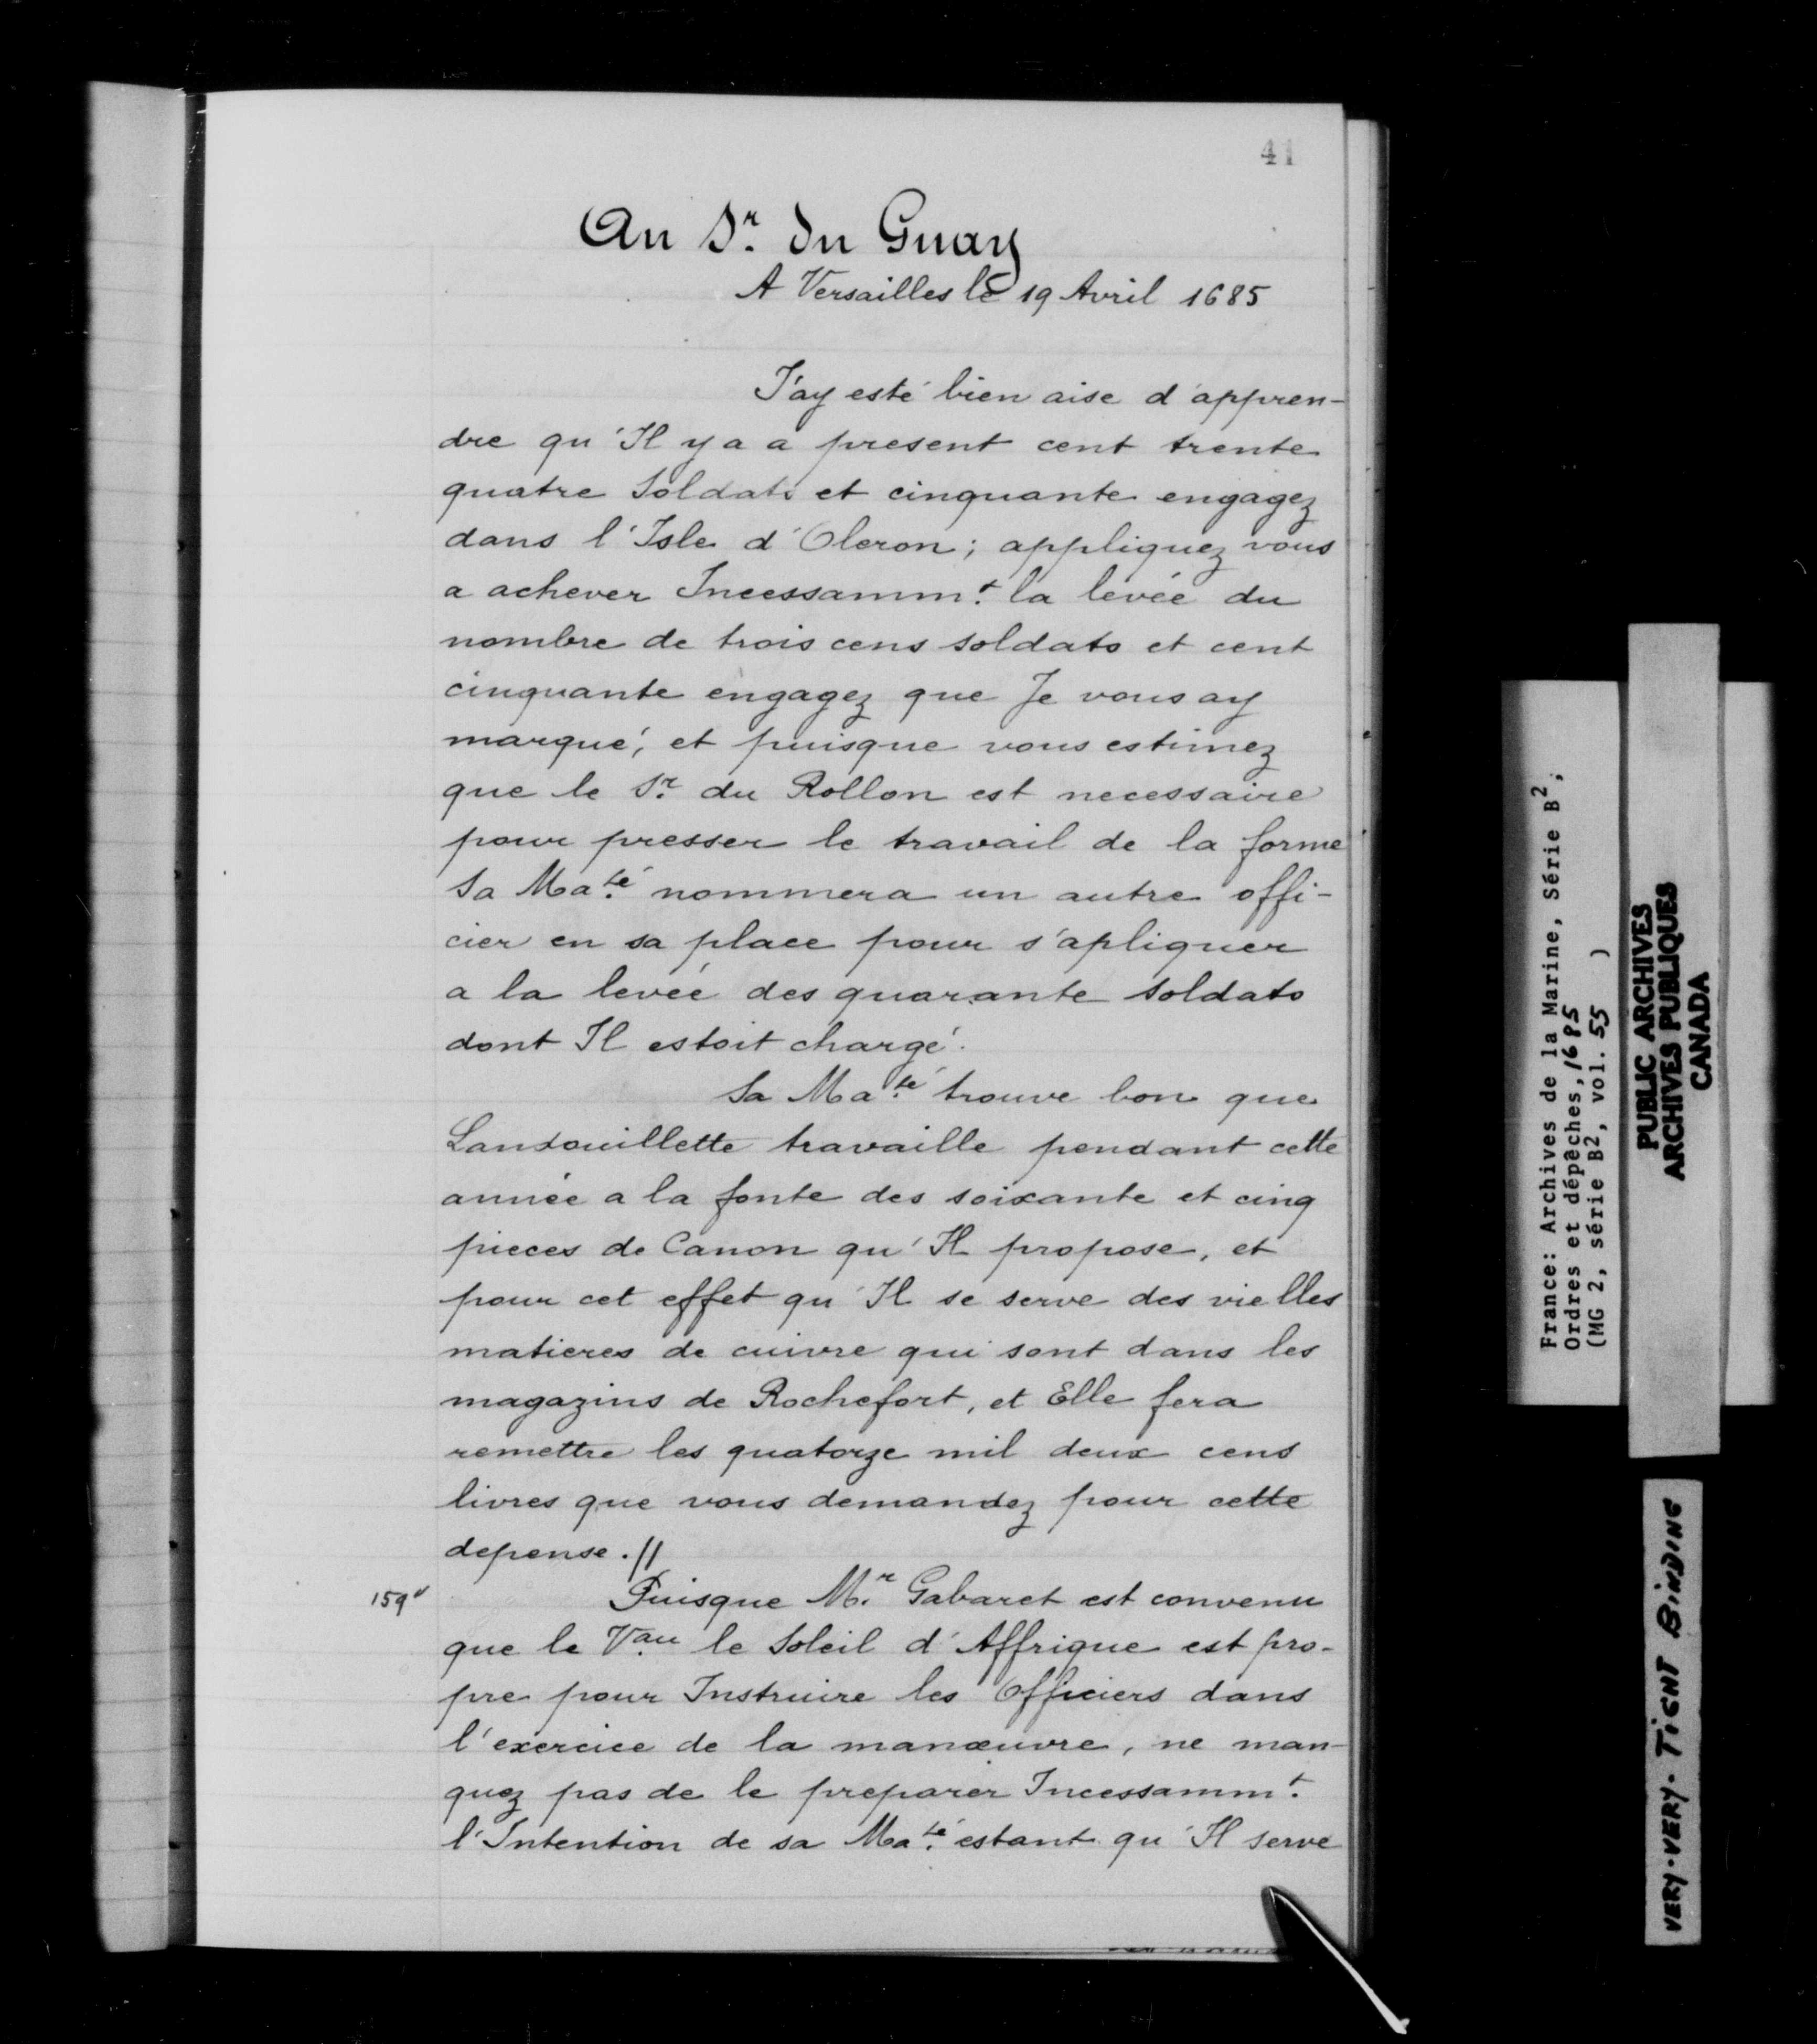 41
Au Sr. du Guay
A Versailles le 19 Avril 1685
J'ay esté bien aise d'appren-
dre qu'Il y a a present cent trente
quatre Soldats et cinquante engagez
dans l'Isle d'Oleron; appliquez vous
a achever Incessamm.t la levée du
nombre de trois cens soldats et cent
cinquante engagez que Je vous ay
marqué, et puisque vous estimez
que le Sr. du Rollon est necessaire
pour presser le travail de la forme
Sa Ma.té nommera un autre offi-
cier en sa place pour s'apliquer
a la levée des quarante soldats
dont Il estoit chargé.
Sa Ma.té trouve bon que
Landouillette travaille pendant cette
année a la fonte des soixante et cinq
pieces de Canon qu'Il propose, et
pour cet effet qu'Il se serve des vielles
matieres de cuivre qui sont dans les
magazins de Rochefort, et Elle fera
remettre les quatorze mil deux cens
livres que vous demandez pour cette
depense.//
159v
Puisque M.r Gabaret est convenu
que le V.au le Soleil d'Affrique est pro-
pre pour Instruire les Officiers dans
l'exercice de la manœuvre, ne man-
quez pas de le preparer Incessamm.t
l'Intention de sa Ma.té estant qu'Il serve
France: Archives de la Marine, Série B2,
Ordres et dépêches, 1685
(MG 2, série B2, vol. 55 )
PUBLIC ARCHIVES
ARCHIVES PUBLIQUES
CANADA
VERY-VERY-TIGHT BINDING